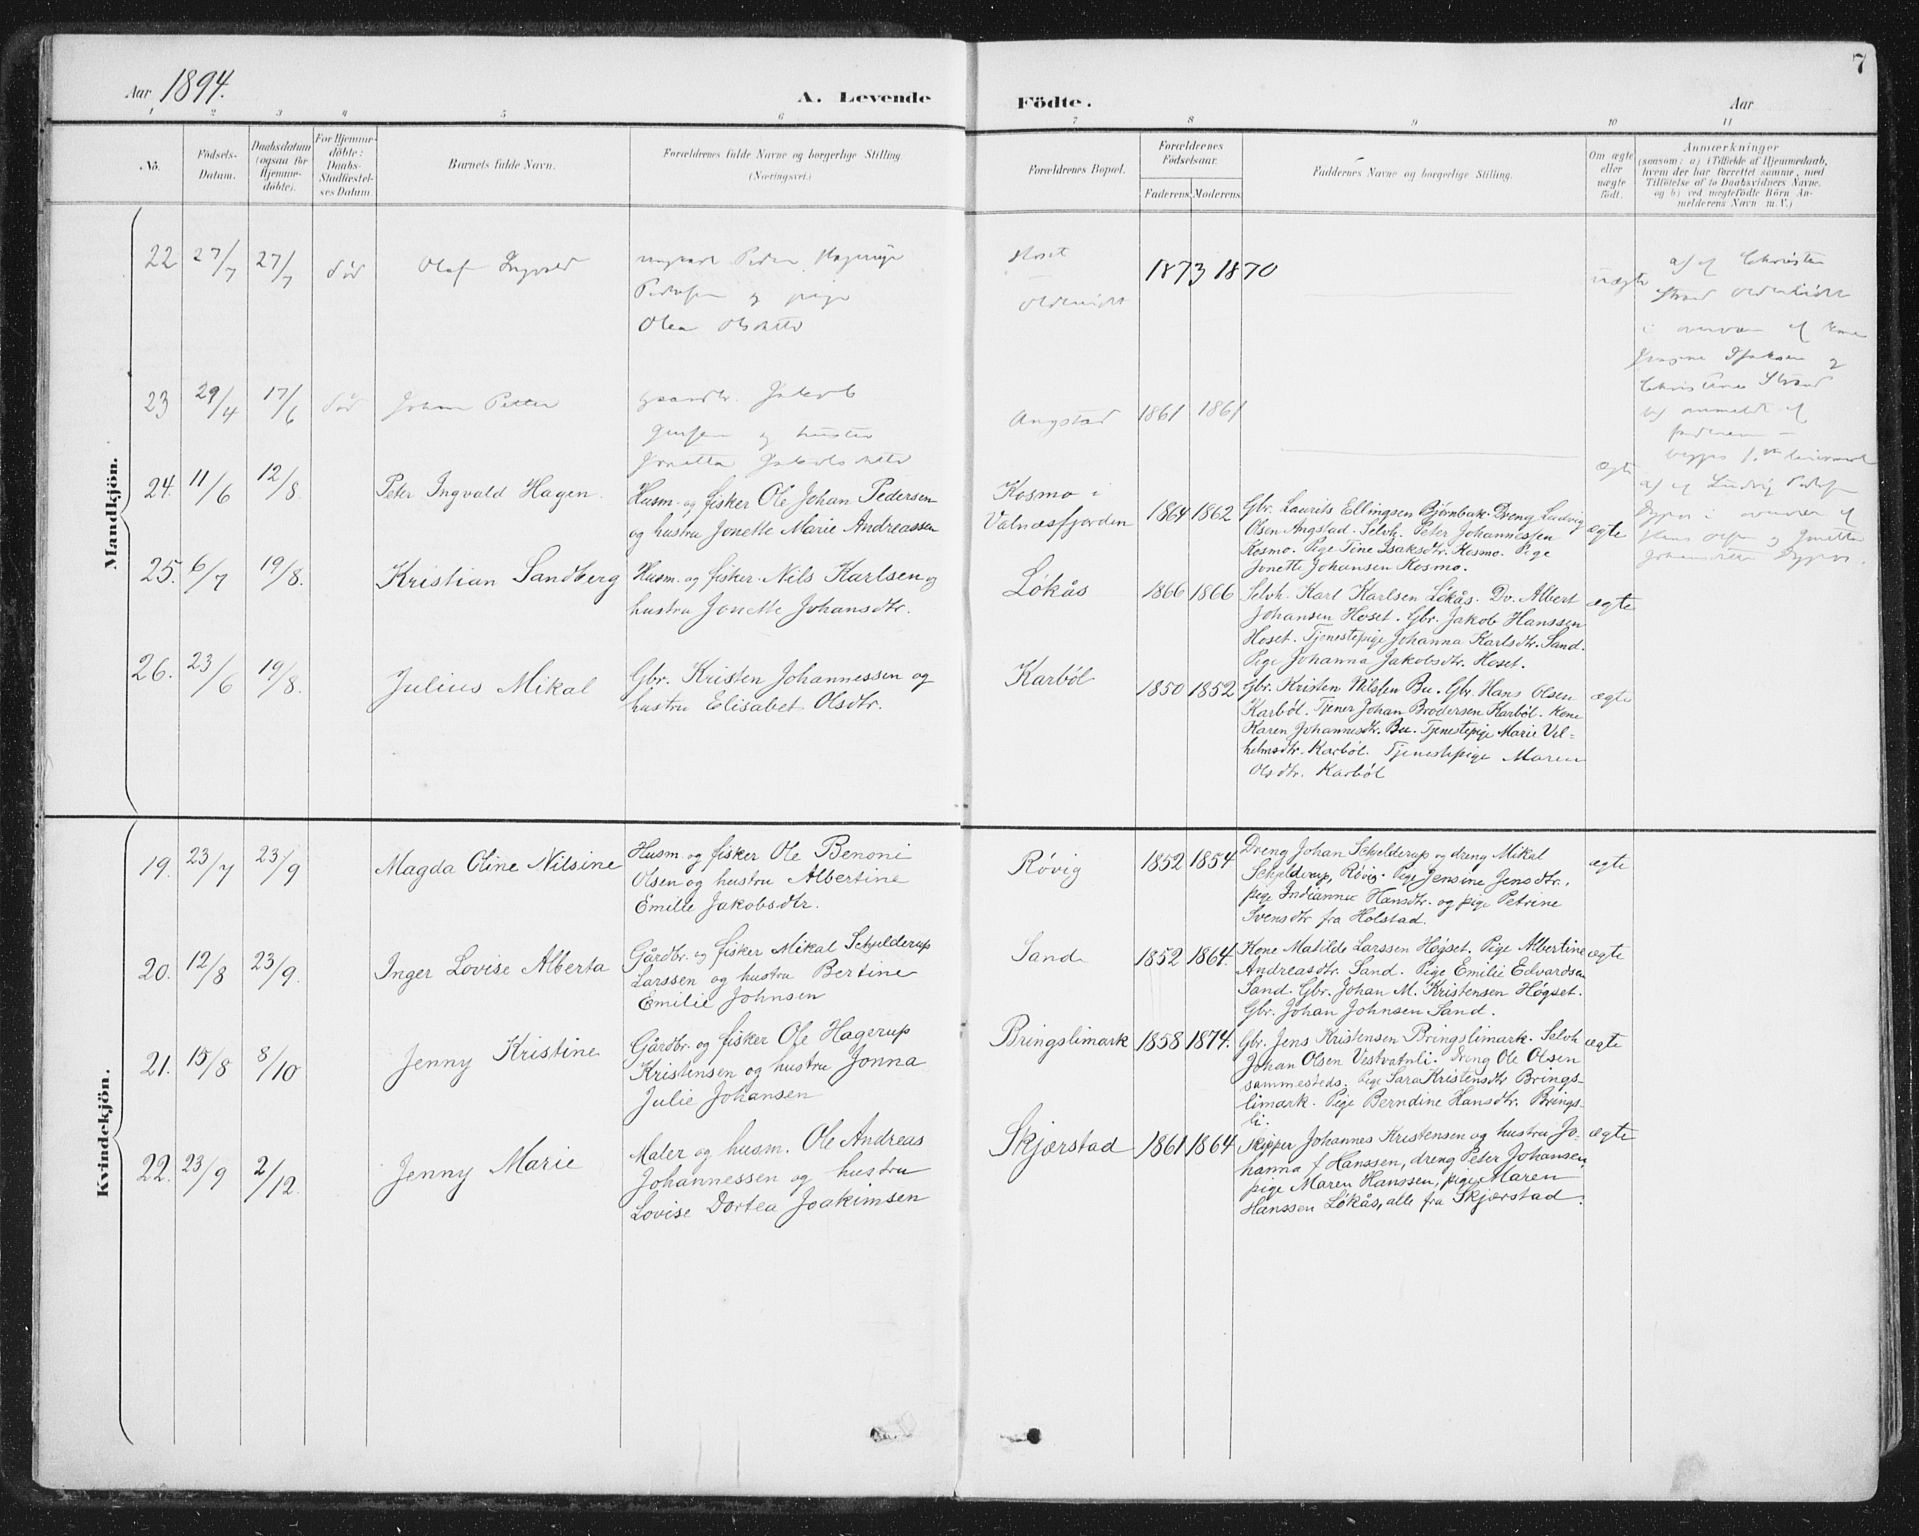 Aar 1894.
A. Levende
Födte.
Aar
7
1 2 3 4 5 6 7 8 9 10 11
No.
Födsels-
Datum.
Daabsdatum
(ogsaa for
Hjemme-
døbte).
For Hjemme-
døbte:
Daabs-
Stadfæstel-
ses Datum.
Barnets fulde Navn.
Forældrenes fulde Navne og borgerlige Stilling
(Næringsvei.)
Forældrenes Bopæl.
Forældrenes
Födselsaar.
Faderens
Moderens
Faddernes Navne og borgerlige Stilling.
Om ægte
eller
uægte
født.
Anmærkninger
(saasom: a) i Tilfælde af Hjemmedaab,
hvem der har forrettet samme, med
Tilföielse af to Daabsvidners Navne.
og b) ved uægtefödte Börn An-
melderens Navn m. V.)
Mandkjön.
22 27/7 27/7 død Olaf Ingvald
ungkarl Peder Hagerup
Pedersen og pige
Olea Olsdatter
Hoset
1873 1870
uægte
af Christen
Strand
i overvær af
og
Strand
b) anmeldt af
faderen –
23 29/4 17/6 død Johan Petter
gaardbr. Jakob
Jensen og hustru
Jonetta Jakobsdatter
Angstad 1861 1861
ægte
af Ludvig Pedersen
i overvær af
og Jonetta
24. 11/6 12/8 Peter Ingvald Hagen.
Husm. og fisker Ole Johan Pedersen
og hustru Jonette Marie Andreassen
Kosmo i
Valnæsfjorden
1864 1862
Gbr. Laurits Ellingsen Bjørnbak. Dreng Ludvig
Olsen Angstad. Selvh. Peter Johannessen
Kosmo. Pige Tine Isaksdtr. Kosmo. Pige
Jonette Johansen Kosmo.
ægte
25. 6/7 19/8. Kristian Sandberg
Husm. og fisker. Nils Karlsen og
hustru Jonette Johansdtr.
Løkås
1866 1866
Selvh. Karl Karlsen Løkås. Do. Albert
Johansen Hoset. Gbr. Jakob Hanssen
Hoset. Tjenestepige Johanna Karlsdtr. Sand.
Pige Johanna Jakobsdtr. Hoset.
ægte
26. 23/6 19/8. Julius Mikal
Gbr. Kristen Johannessen og
hustru Elisabet Olsdtr.
Karbøl
1850 1852
Gbr. Kristen Nilssen Bu. Gbr. Hans Olsen
Karbøl. Tjener Johan Brodersen Karbøl. Kone
Karen Johannesdtr. Bu. Tjenestepige Marie Vil-
helmsdtr. Karbøl. Tjenestepige Maren
Olsdtr. Karbøl
ægte
Kvindekjön.
19. 23/7 23/9 Magda Oline Nilsine
Husm. og fisker Ole Benoni
Olsen og hustru Albertine
Emilie Jakobsdtr.
Røvig
1852 1854
Dreng Johan Schjelderup og dreng Mikal
Schjelderup, Røvig. Pige Jensine Jensdtr.,
pige Indianna Hansdtr. og pige Petrine
Svensdtr fra Holstad.
ægte
20. 12/8 23/9. Inger Lovise Alberta
Gårdbr. og fisker Mikal Schjelderup
Larssen og hustru Bertine
Emilie Johnsen
Sand
1852 1864.
Kone Matilde Larssen Høgset. Pige Albertine
Andreasdtr. Sand. Pige Emilie Edvardsen
Sand. Gbr. Johan M. Kristensen Høgset.
Gbr. Johan Johnsen Sand.
ægte
21. 15/8 8/10 Jenny Kristine
Gårdbr. og fisker Ole Hagerup
Kristensen og hustru Jonna
Julie Johansen
Bringslimark
1858 1874.
Gbr. Jens Kristensen Bringslimark. Selvh
Johan Olsen Vestvatnli. Dreng Ole Olsen
sammesteds. Pige Sara Kristensdtr Brings-
limark. Pige Berndine Hansdtr. Brings-
li.
ægte
22. 23/9 2/12. Jenny Marie
Maler og husm. Ole Andreas
Johannessen og hustru
Lovise Dortea Joakimsen
Skjærstad
1861 1864.
Skipper Johannes Kristensen og hustru Jo-
hanna f Hanssen, dreng Peter Johansen,
pige Maren Hanssen, pige Maren
Hanssen Løkås, alle fra Skjærstad.
ægte